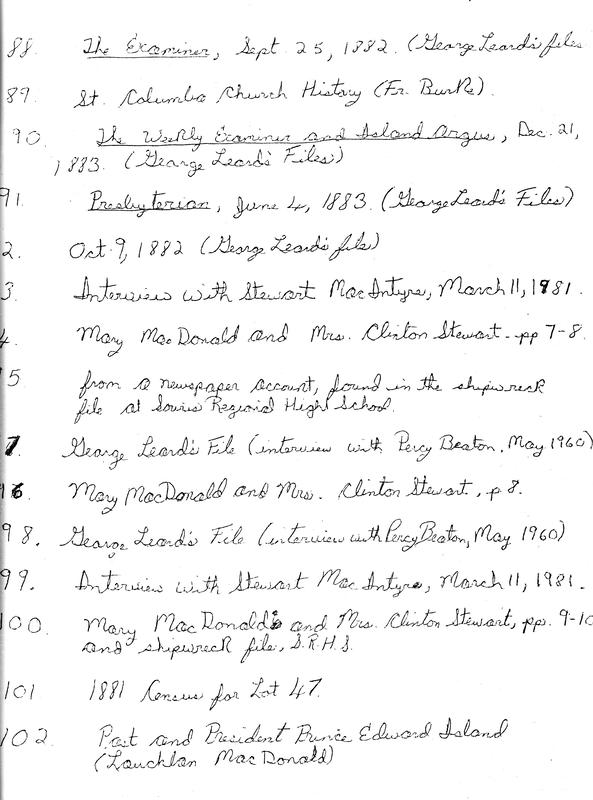 88. The Examiner, Sept. 25, 1882. (George Leard's files
89. St. Columba Church History (Fr. Burke).
90. The Weekly Examiner and Island Argus, Dec. 21,
1883. (George Leard's Files)
91. Presbyterian, June 4, 1883. (George Leard's Files)
2. Oct. 9, 1882 (George Leard's file)
3. Interview with Stewart MacIntyre, March 11, 1981.
4. Mary MacDonald and Mrs. Clinton Stewart - pp 7-8.
5 from a newspaper account, found in the shipwreck
file at Souris Regional High School.
7. George Leard's File (interview with Percy Beaton, May 1960)
96. Mary MacDonald and Mrs. Clinton Stewart, p 8.
98. George Leard's File (interview with Percy Beaton, May 1960)
99. Interview with Stewart MacIntyre, March 11, 1981.
100. Mary MacDonald's and Mrs. Clinton Stewart, pps. 9-10
and shipwreck file, S.R.H.S.
101 1881 Census for Lot 47.
102. Past and President Prince Edward Island
(Lauchlan MacDonald)